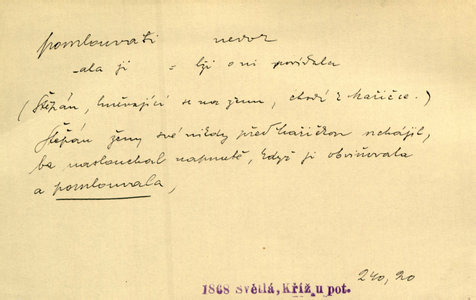 pomlouvati nedok
-ala ji = lži o ní povídala
(Štěpán, hněvající se na ženu, chodí k Maričce.)
Štěpán ženy své nikdy před Maričkou nehájil,
ba naslouchal napnutě, když ji obviňovala
a pomlouvala,
240, 20
1868 Světlá, Kříž u pot.